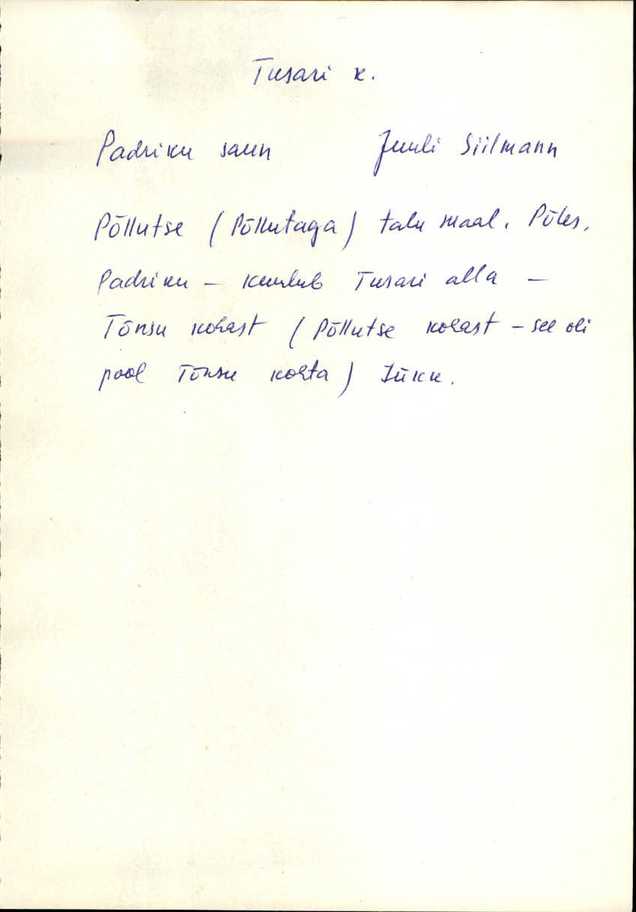 Tusari k.
Padriku saun Juuli Siilmann
Põllutse (Põllutaga) talu maal. Põles.
Padriku – kuulub Tusari alla –
Tõnsu kohast (Põllutse kohast – see oli
pool Tõnsu kohta) Jüku.